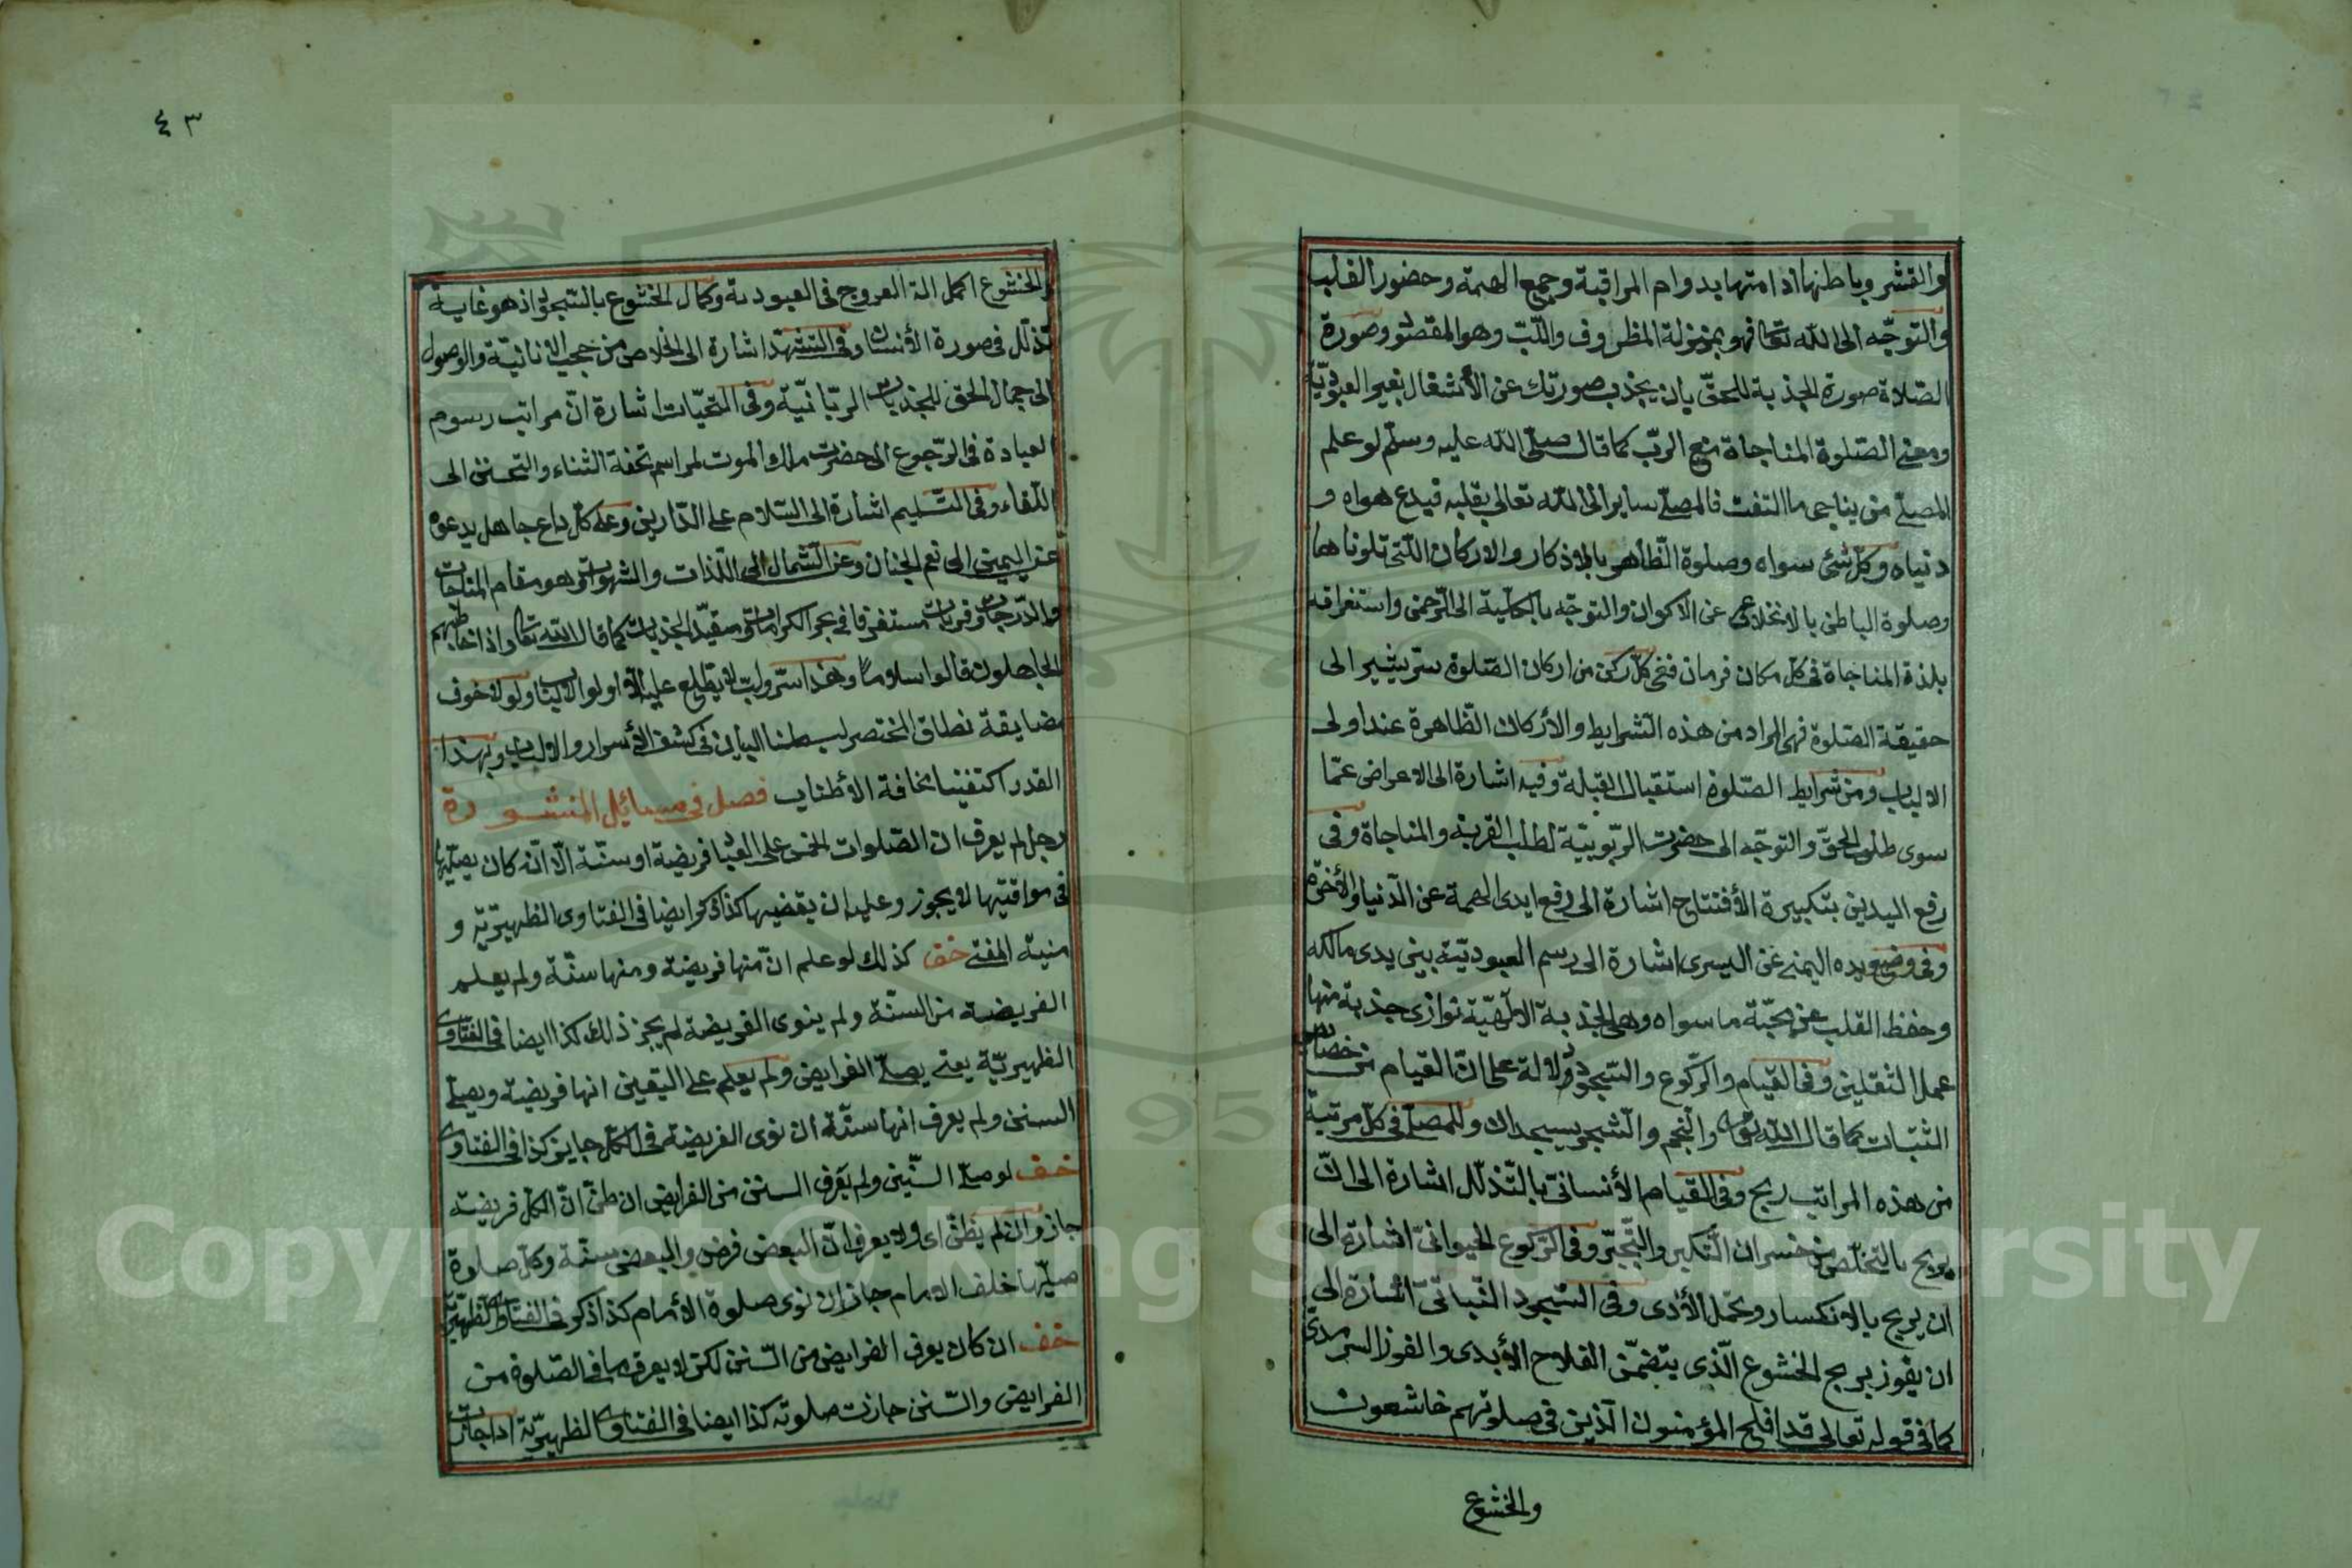 والقشر وباطنها ادامتها بدوام المراقبة وجمع الهمة وحضور القلب
والتوجّه الى الله تعا فهو بمنزلة المظروف واللّبّ وهو المقصو وصورة
الصّلاة صورة الجذبة للحقّ بان يجذب صورتك عن الأشتغال بغير العبوديّة
ومعنى الصّلوة المناجاة مع الربّ كما قال صلى الله عليه وسلّم لو علم
المصلّے من يناجى ما التفت فالمصلّے ساير الى الله تعالى بقلبه فيدع هواه و
دنياه وكلّ شئ سواه وصلوة الظّاهر بالاذكار والاركان اللّتى تلوناها
وصلوة الباطن بالانخلاع عن الاكوان والتوجّه بالكلّية الى الرّحمن واستغراقه
بلذة المناجاة فى كلّ مكان فرمان ففى كلّ ركن من اركان الصّلوة ستر يشير الى
حقيقة الصّلوة فهى المراد من هذه الشرايط والأركان الظّاهرة عند اولى
الالباب ومن شرايط الصّلوة استقبال القبلة وفيه اشارة الى الاعراض عمّا
سوى طلب الحقّ والتوجّه الى حضرت الرّبوبيّة لطلب القربة والمناجاة وفى
رفع اليدين بتكبيرة الأفتتاح اشارة الى رفع ايدى الهمة عن الدّنيا والأخرة
وفى وضع يده اليمنى عن اليسرى اشارة الى رسم العبوديّة بين يدى مالكه
وحفظ القلب عن محبّة ما سواه وهى الجذبة الالٓهيّة توازى جذبة منها
عمل الثقلين وفى القيام والرّكوع والسّجود دلالة على انّ القيام من خصايص
النّبات كما قال الله تعا والنّجم والشّجر يسجدان وللمصلّے فى كلّ مرتبة
من هذه المراتب ربح وفى القيام الأنسانىّ بالتّذلّل اشارة الى انّ
يربح بالتخلّص من خسران التّكبر والتّجبّر وفى الرّكوع الحيوانىّ اشارة الى
ان يربح بالانكسار وتحمّل الأذى وفى السّجود النّباتىّ اشارة الى
ان يفوز بربح الخشوع الّذى يتضمّن الفلاح الأبدى والفوز السّرمدى
كما فى قوله تعالى قد افلح المؤمنون الّذين فى صلوتهم خاشعون
والخشوع
٤٣
والخشوع اكمل الة العروج فى العبودية وكمال الخشوع بالسّجود اذ هو غاية
تذلّل فى صورة الأنسان وفى التشهد اشارة الى الخلاص من حجب الانانيّة والوصول
الى جمال الحق للجذبات الربّانيّة وفى التحيّات اشارة انّ مراتب رسوم
العبادة فى الرّجوع الى حضرت ملك الموت لمراسم تحفة الثناء والتحنن الى
اللّقاء وفى التّسليم اشارة الى السّلام على الدّارين وعلى كلّ داع جاهل يدعوه
عن اليمين الى نعم الجنان وعن الشّمال الى اللّذات والشّهوات وهو مقام المناجات
والدّرجات وقربات مستغرقا فى بحر الكرامات ومقيّد الجذبات كما قال الله تعا واذا خاطبهم
الجاهلون قالوا سلاومًا وهذا سرّ ولبّ لا يطّلع عليه الاّ اولوا الالباب ولولا خوف
مضايقة نطاق المختصر لبسطنا البيان فى كشف الأسرار والالباب وبهذا
القدر اكتفينا مخافة الأطناب فصل فى مسائل المنشورة
رجل لم يعرف ان الصّلوات الخمس على العباد فريضة او سنّة الّا انّه كان يصلّيها
فى مواقيتها لا يجوز وعليه ان يقضيها كذا ذكر ايضا فى الفتاوى الظهيريّة و
منية المفتى خف كذلك لو علم انّ منها فريضة ومنها سنّة ولم يعلم
الفريضة من السنّة ولم ينوى الفريضة لم يجز ذلك كذا ايضا فى الفتاوى
الظهيريّة يعنى يصلّے الفرايض ولم يعلم على اليقين انها فريضة ويصلّے
السنن ولم يعرف انها سنّة ان نوى الفريضة فى الكلّ جايز كذا فى الفتاوى
خف لو صلّے السّنين ولم يعرف السنن من الفرايض ان ظنّ انّ الكلّ فريضة
جاز وان لم يظنّ اى ولا يعرف انّ البعض فرض والبعض سنّة وكلّ صلوة
صلّيها خلف الامام جاز ان نوى صلوة الأمام كذا ذكر فى الفتاوى الظهيريّة
خف ان كان يعرف الفرايض من السّنن لكن لا يعرف ما فى الصّلوة من
الفرايض والسّنن جازت صلوته كذا ايضا فى الفتاوى الظهيريّة اذا جاءت
Copyright © King Saud University